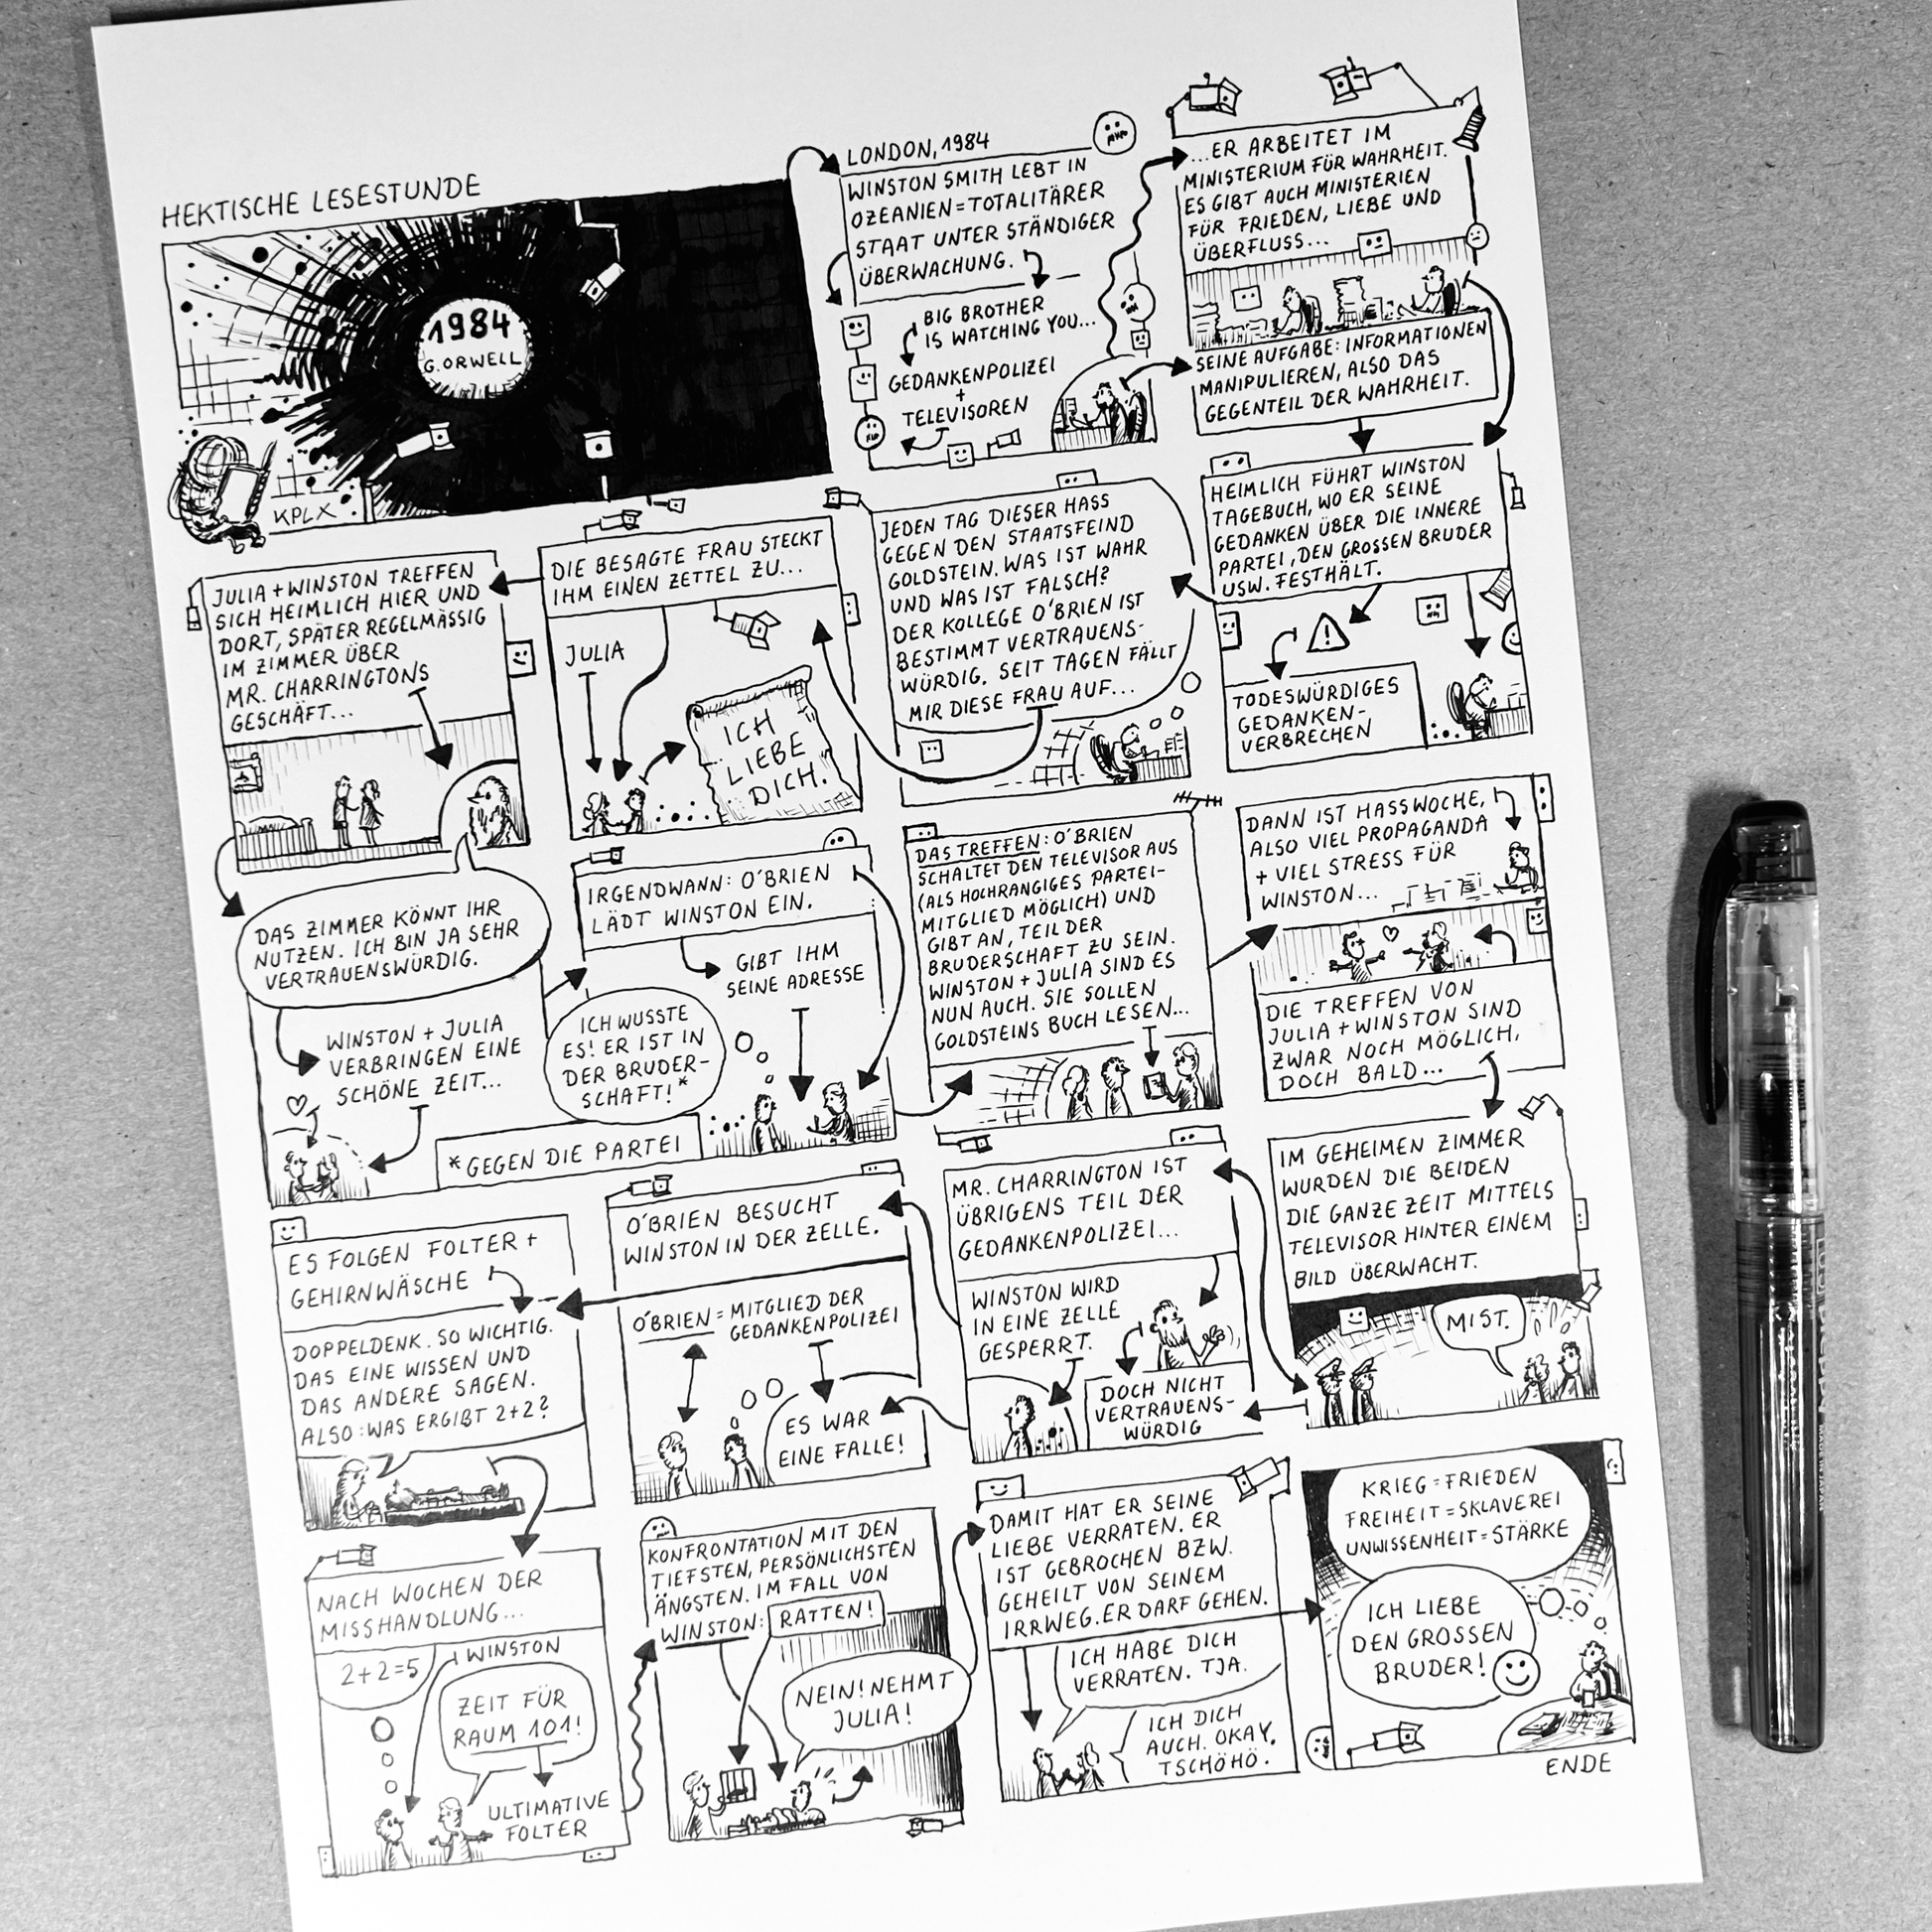 HEKTISCHE LESESTUNDE
1984
G. ORWELL
KPLX
LONDON, 1984
WINSTON SMITH LEBT IN
OZEANIEN = TOTALITÄRER
STAAT UNTER STÄNDIGER
ÜBERWACHUNG.
BIG BROTHER
IS WATCHING YOU...
GEDANKENPOLIZEI
+
TELEVISOREN
...ER ARBEITET IM
MINISTERIUM FÜR WAHRHEIT.
ES GIBT AUCH MINISTERIEN
FÜR FRIEDEN, LIEBE UND
ÜBERFLUSS...
SEINE AUFGABE: INFORMATIONEN
MANIPULIEREN, ALSO DAS
GEGENTEIL DER WAHRHEIT.
HEIMLICH FÜHRT WINSTON
TAGEBUCH, WO ER SEINE
GEDANKEN ÜBER DIE INNERE
PARTEI, DEN GROSSEN BRUDER
USW. FESTHÄLT.
TODESWÜRDIGES
GEDANKEN-
VERBRECHEN
JEDEN TAG DIESER HASS
GEGEN DEN STAATSFEIND
GOLDSTEIN. WAS IST WAHR
UND WAS IST FALSCH?
DER KOLLEGE O'BRIEN IST
BESTIMMT VERTRAUENS-
WÜRDIG. SEIT TAGEN FÄLLT
MIR DIESE FRAU AUF...
DIE BESAGTE FRAU STECKT
IHM EINEN ZETTEL ZU...
JULIA
ICH
LIEBE
DICH.
JULIA + WINSTON TREFFEN
SICH HEIMLICH HIER UND
DORT, SPÄTER REGELMÄSSIG
IM ZIMMER ÜBER
MR. CHARRINGTONS
GESCHÄFT...
DAS ZIMMER KÖNNT IHR
NUTZEN. ICH BIN JA SEHR
VERTRAUENSWÜRDIG.
WINSTON + JULIA
VERBRINGEN EINE
SCHÖNE ZEIT...
IRGENDWANN: O'BRIEN
LÄDT WINSTON EIN.
GIBT IHM
SEINE ADRESSE
ICH WUSSTE
ES! ER IST IN
DER BRUDER-
SCHAFT!*
*GEGEN DIE PARTEI
DAS TREFFEN: O'BRIEN
SCHALTET DEN TELEVISOR AUS
(ALS HOCHRANGIGES PARTEI-
MITGLIED MÖGLICH) UND
GIBT AN, TEIL DER
BRUDERSCHAFT ZU SEIN.
WINSTON + JULIA SIND ES
NUN AUCH. SIE SOLLEN
GOLDSTEINS BUCH LESEN...
DANN IST HASSWOCHE,
ALSO VIEL PROPAGANDA
+ VIEL STRESS FÜR
WINSTON...
DIE TREFFEN VON
JULIA + WINSTON SIND
ZWAR NOCH MÖGLICH,
DOCH BALD...
IM GEHEIMEN ZIMMER
WURDEN DIE BEIDEN
DIE GANZE ZEIT MITTELS
TELEVISOR HINTER EINEM
BILD ÜBERWACHT.
MIST.
MR. CHARRINGTON IST
ÜBRIGENS TEIL DER
GEDANKENPOLIZEI...
WINSTON WIRD
IN EINE ZELLE
GESPERRT.
DOCH NICHT
VERTRAUENS-
WÜRDIG
O'BRIEN BESUCHT
WINSTON IN DER ZELLE.
O'BRIEN = MITGLIED DER
GEDANKENPOLIZEI
ES WAR
EINE FALLE!
ES FOLGEN FOLTER +
GEHIRNWÄSCHE
DOPPELDENK. SO WICHTIG.
DAS EINE WISSEN UND
DAS ANDERE SAGEN.
ALSO: WAS ERGIBT 2+2?
NACH WOCHEN DER
MISSHANDLUNG...
WINSTON
2+2=5
ZEIT FÜR
RAUM 101!
ULTIMATIVE
FOLTER
KONFRONTATION MIT DEN
TIEFSTEN, PERSÖNLICHSTEN
ÄNGSTEN. IM FALL VON
WINSTON: RATTEN!
NEIN! NEHMT
JULIA!
DAMIT HAT ER SEINE
LIEBE VERRATEN. ER
IST GEBROCHEN BZW.
GEHEILT VON SEINEM
IRRWEG. ER DARF GEHEN.
ICH HABE DICH
VERRATEN. TJA.
ICH DICH
AUCH. OKAY.
TSCHÖHÖ.
KRIEG = FRIEDEN
FREIHEIT = SKLAVEREI
UNWISSENHEIT = STÄRKE
ICH LIEBE
DEN GROSSEN
BRUDER!
ENDE